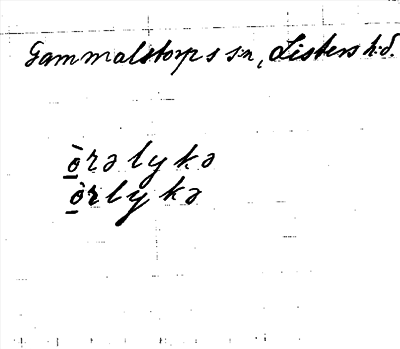 Gammalstorps sn, Listers hd.
ò̲rəlykə
ò̲rlykə